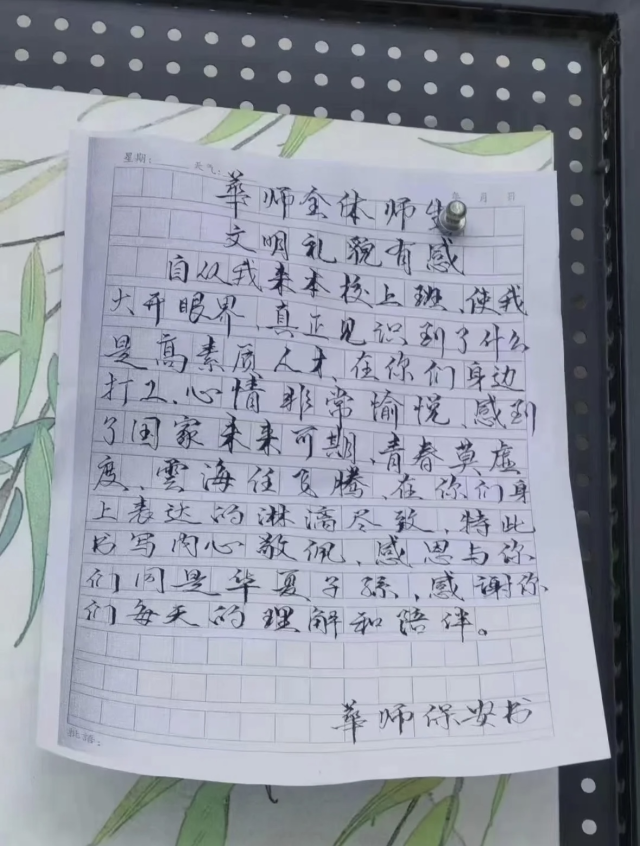 星期： 天气： 年 月 日
華师全体师生
文明礼貌有感
自从我来本校上班、使我
大开眼界、真正见识到了什么
是高素质人才、在你们身边
打工、心情非常愉悦、感到
了国家未来可期、青春莫虚
度、雲海任飞腾、在你们身
上表达的淋漓尽致、特此
书写内心敬佩、感恩与你
们同是华夏子孫、感谢你
们每天的理解和陪伴。
華师保安书